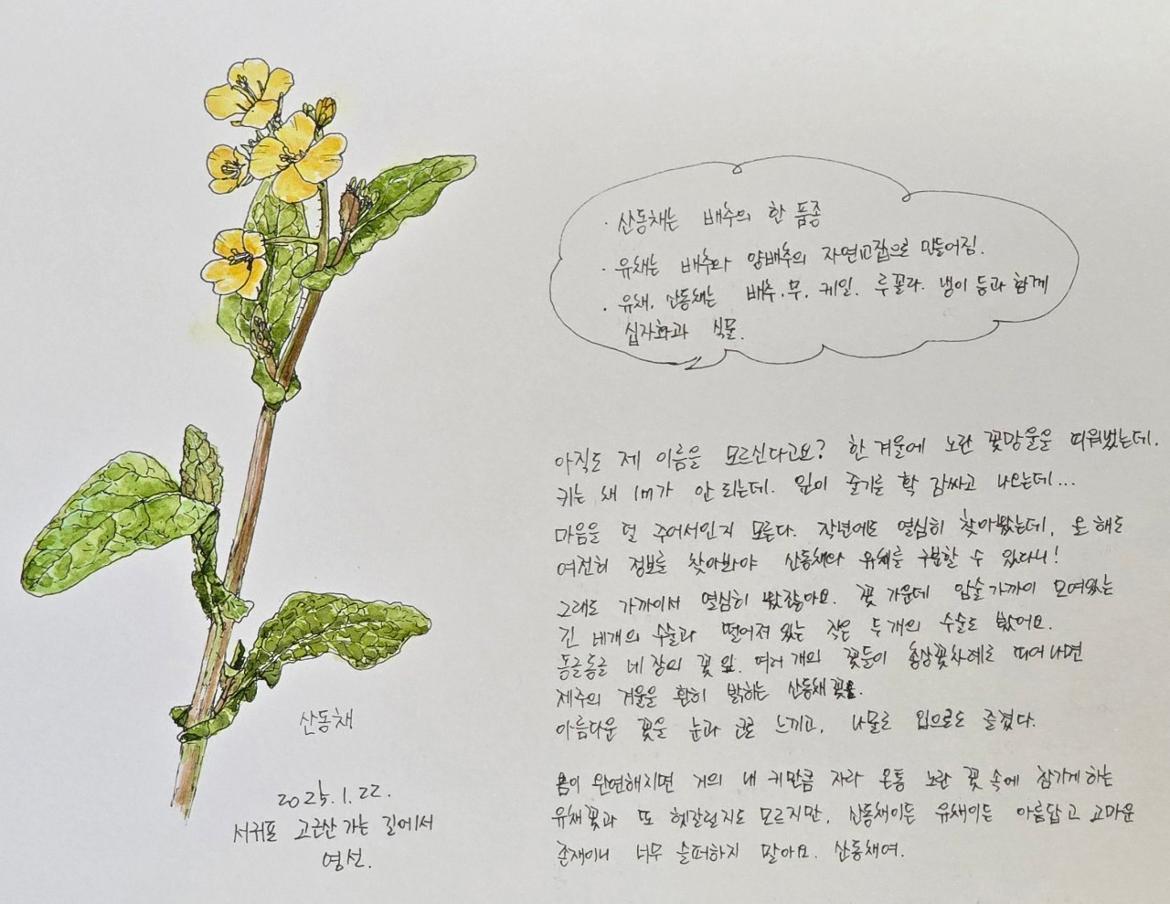 · 산동채는 배추의 한 품종
· 유채는 배추와 양배추의 자연교잡으로 만들어짐.
· 유채, 산동채는 배추.무.케일.루꼴라.냉이 등과 함께
십자화과 식물.
아직도 제 이름을 모르신다고요? 한 겨울에 노란 꽃망울을 띄워봤는데.
키는 채 1m가 안 되는데. 잎이 줄기를 확 감싸고 나오는데...
마음을 덜 주어서인지 모른다. 작년에도 열심히 찾아봤는데, 올 해도
여전히 정보를 찾아봐야 산동채와 유채를 구분할 수 있다니!
그래도 가까이서 열심히 봤잖아요. 꽃 가운데 암술 가까이 모여있는
긴 네개의 수술과 떨어져 있는 작은 두 개의 수술도 봤어요.
동글동글 네 장의 꽃잎. 여러 개의 꽃들이 총상꽃차례로 피어나면
제주의 겨울을 환히 밝히는 산동채 꽃.
아름다운 꽃을 눈과 코로 느끼고, 나물로 입으로도 즐겼다.
봄이 완연해지면 거의 내 키만큼 자라 온통 노란 꽃 속에 잠기게 하는
유채꽃과 또 헷갈릴지도 모르지만, 산동채이든 유채이든 아름답고 고마운
존재이니 너무 슬퍼하지 말아요. 산동채여.
산동채
2025.1.22.
서귀포 고근산 가는 길에서
영선.